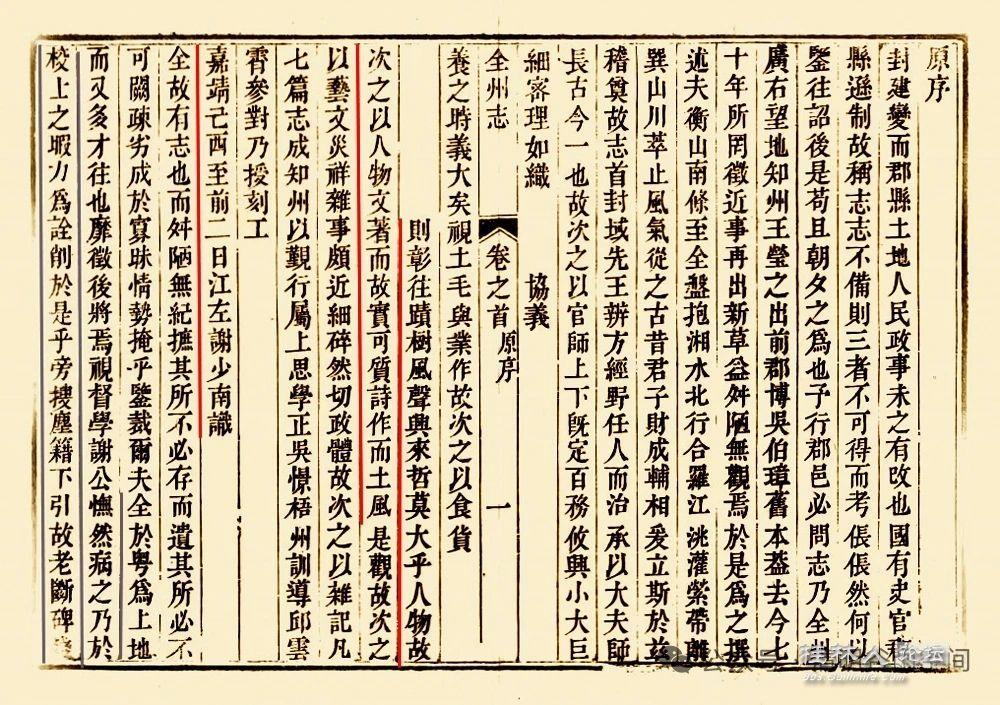 原序
封建變而郡縣土地人民政事未之有改也國有史官
縣遜制故稱志志不備則三者不可得而考倀倀然何以
鑒往詔後是苟且朝夕之爲也予行郡邑必問志乃全州
廣右望地知州王瑩之出前郡博吳伯璋舊本葢去今七
十年所罔徵近事再出新草益舛陋無觀焉於是爲之撰
述夫衡山南條至全盤抱湘水北行合羅江洮灌縈帶離
巽山川萃止風氣從之古昔君子財成輔相爰立斯於茲
稽奠故志首封域先王辨方經野任人而治承以大夫師
長古今一也故次之以官師上下旣定百務攸興小大臣
細密理如織 協義
全州志 卷之首 原序 一
養之時義大矣視土毛與業作故次之以食貨
則彰往蹟樹風聲興來哲莫大乎人物故
次之以人物文著而故實可質詩作而土風是觀故次之
以藝文災祥雜事頗近細碎然切政體故次之以雜記凡
七篇志成知州以覲行屬上思學正吳憬梧州訓導邱雲
霄參對乃授刻工
嘉靖己酉至前二日江左謝少南識
全故有志也而舛陋無紀摭其所不必存而遺其所必不
可闕疎劣成於寡昧情勢掩乎鑒裁爾夫全於粵爲上地
而又多才往也靡徵後將焉視督學謝公憮然病之乃於
校上之暇力爲詮削於是乎旁搜塵籍下引故老斷碑
桂林人论坛
bbs.Guilinlife.com